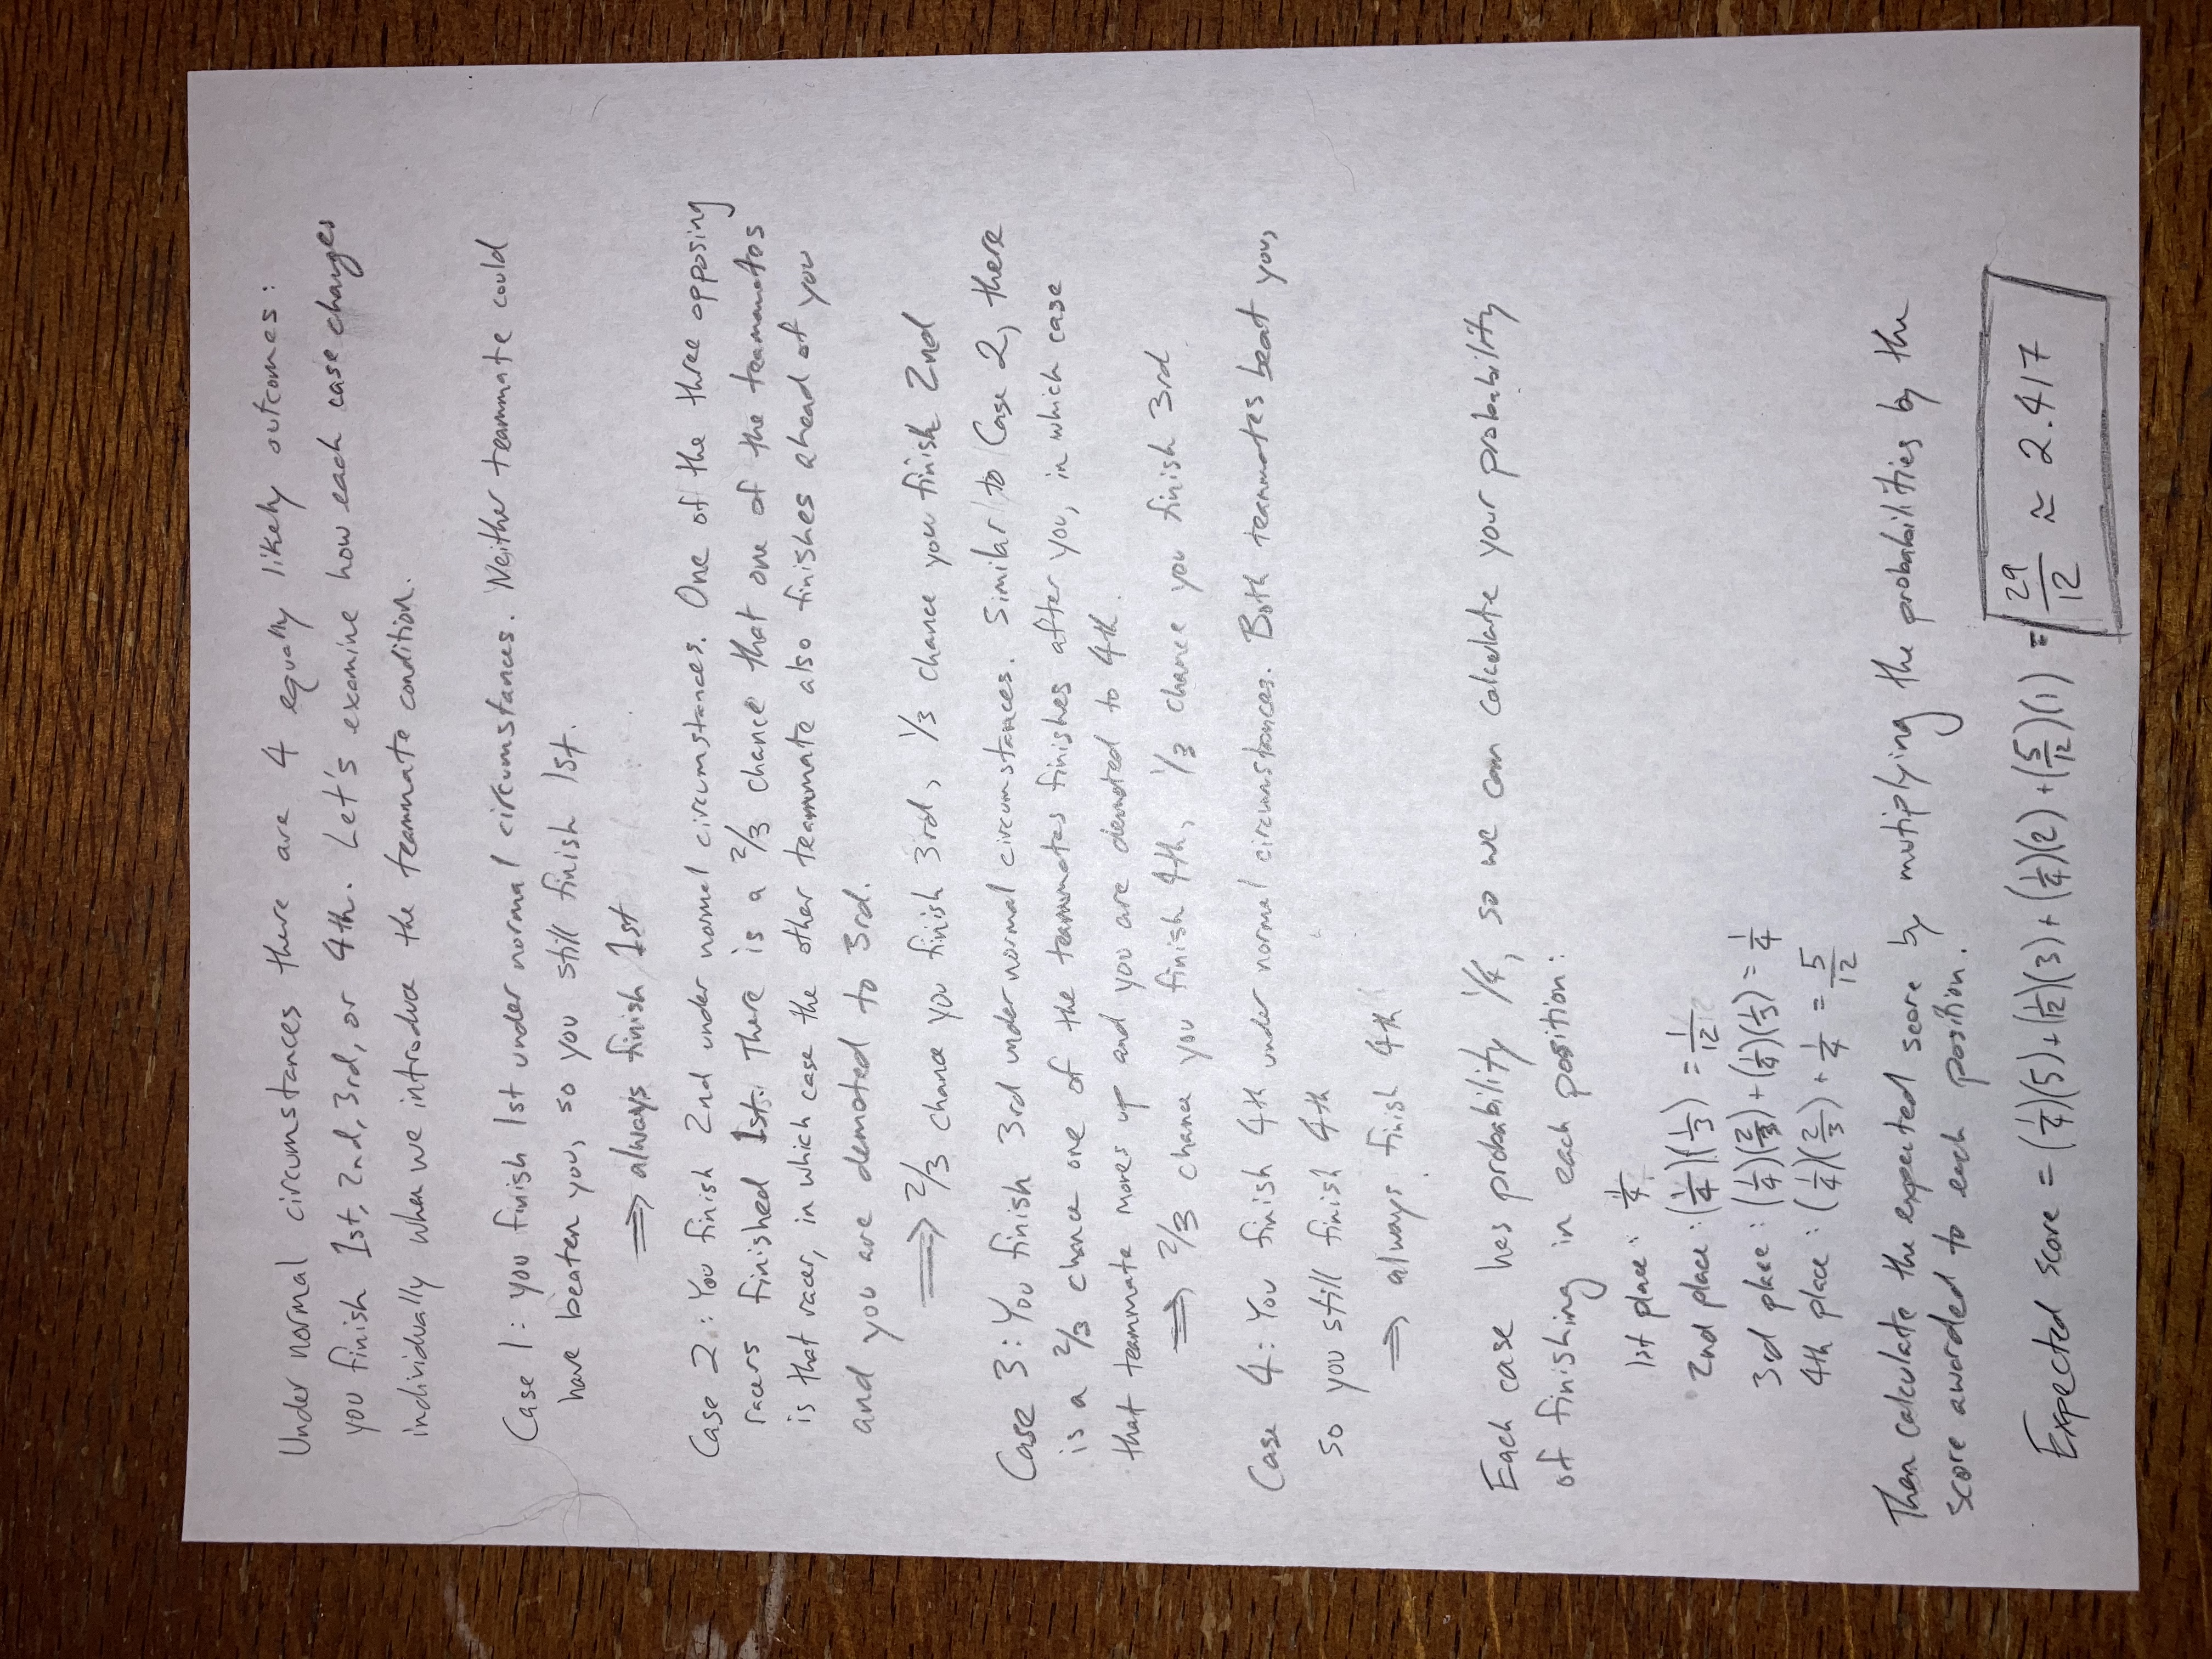 Under normal circumstances there are 4 equally likely outcomes:
you finish 1st, 2nd, 3rd, or 4th. Let's examine how each case changes
individually when we introduce the teammate condition.
Case 1: you finish 1st under normal circumstances. Neither teammate could
have beaten you, so you still finish 1st.
⟹ always finish 1st
Case 2: You finish 2nd under normal circumstances. One of the three opposing
racers finished 1st. There is a 2/3 chance that one of the teammates
is that racer, in which case the other teammate also finishes ahead of you
and you are demoted to 3rd.
⟹ 2/3 chance you finish 3rd, 1/3 chance you finish 2nd
Case 3: You finish 3rd under normal circumstances. Similar to Case 2, there
is a 2/3 chance one of the teammates finishes after you, in which case
that teammate moves up and you are demoted to 4th.
⟹ 2/3 chance you finish 4th, 1/3 chance you finish 3rd
Case 4: You finish 4th under normal circumstances. Both teammates beat you,
so you still finish 4th
⟹ always finish 4th
Each case has probability 1/4, so we can calculate your probability
of finishing in each position:
1st place: 1/4
2nd place: (1/4)(1/3) = 1/12
3rd place: (1/4)(2/3) + (1/4)(1/3) = 1/4
4th place: (1/4)(2/3) + 1/4 = 5/12
Then calculate the expected score by mutiplying the probabilities by the
score awarded to each position.
Expected score = (1/4)(5) + (1/12)(3) + (1/4)(2) + (5/12)(1) = 29/12 ≈ 2.417